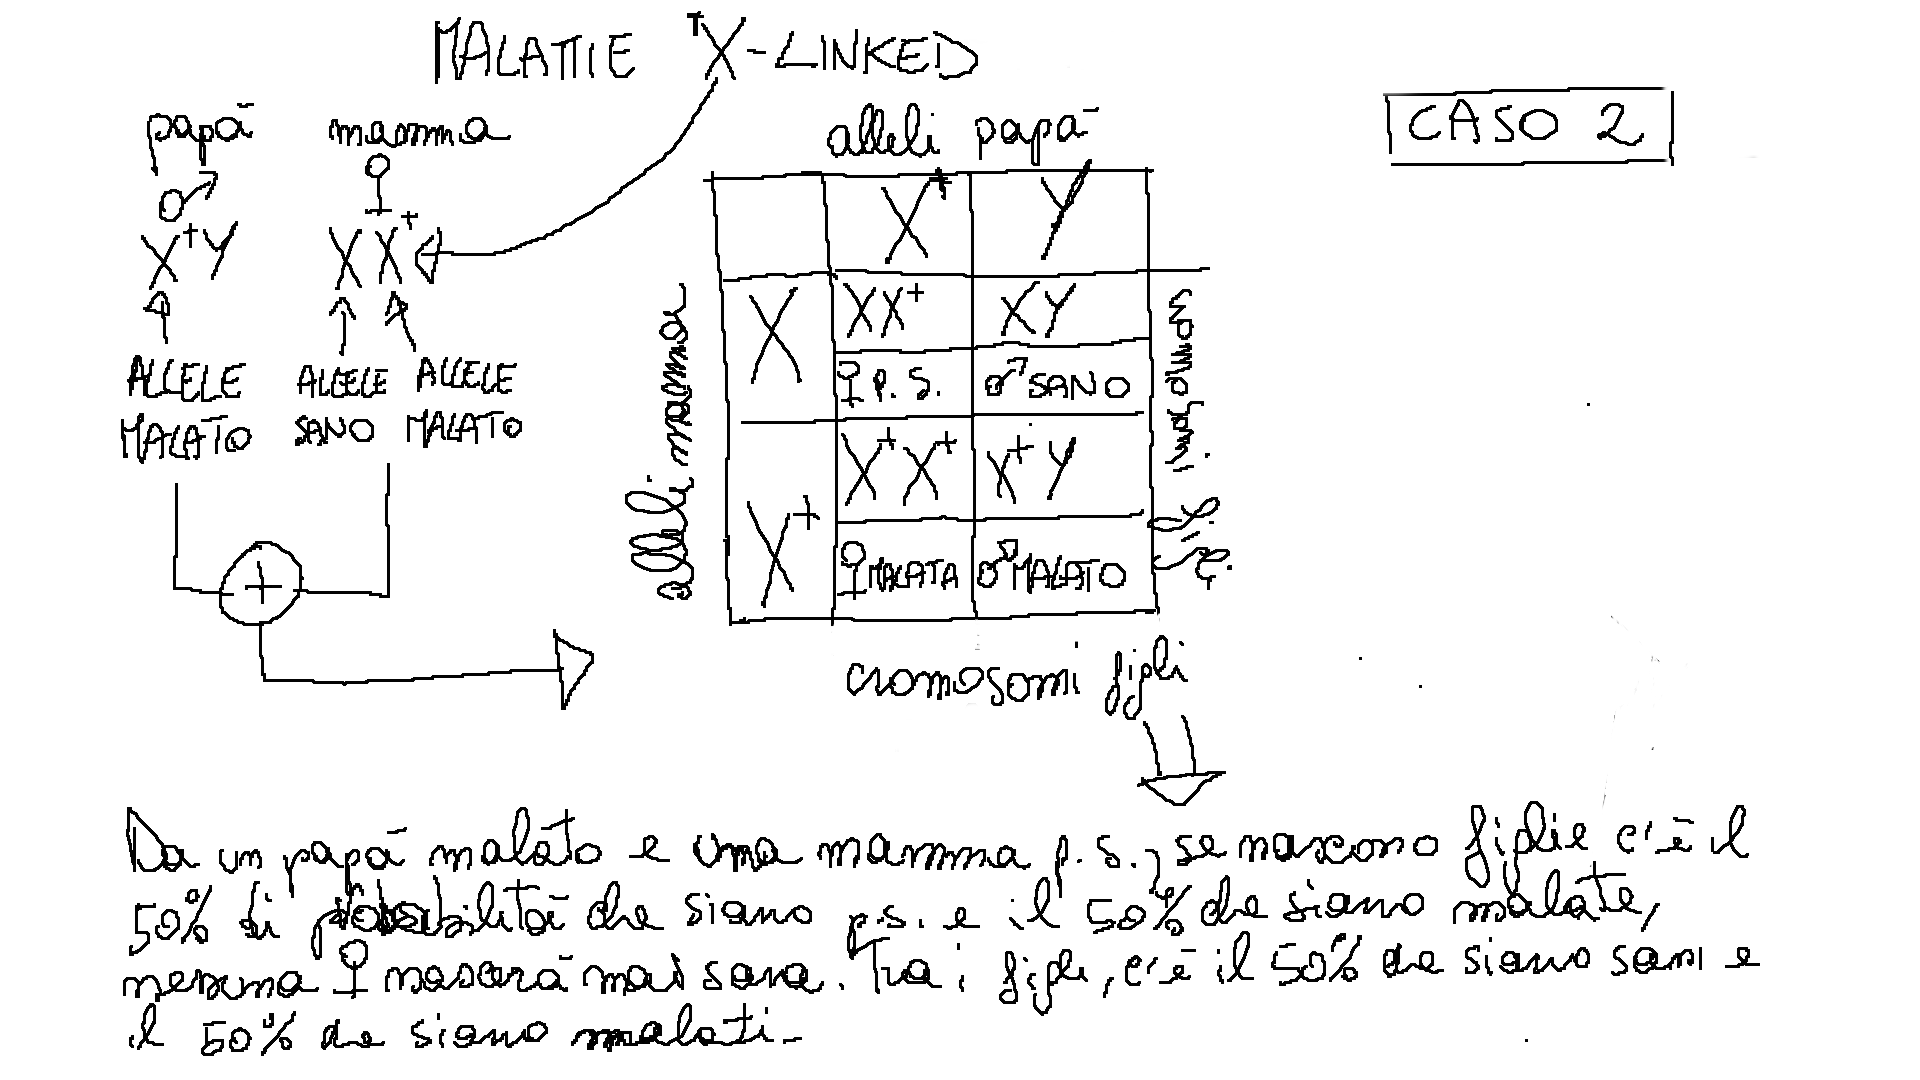 MALATTIE X-LINKED
CASO 2
papà mamma
♂ ♀
X⁺Y XX⁺
ALLELE MALATO
ALLELE SANO
ALLELE MALATO
+
alleli papà
X⁺ Y
alleli mamma
X XX⁺ XY
♀ P.S. ♂ SANO
X⁺ X⁺X⁺ X⁺Y
♀ MALATA ♂ MALATO
cromosomi figli
Da un papà malato e una mamma p.s., se nascono figlie c'è il
50% di probabilità che siano p.s. e il 50% che siano malate,
nessuna ♀ nascerà mai sana. Tra i figli, c'è il 50% che siano sani e
il 50% che siano malati.